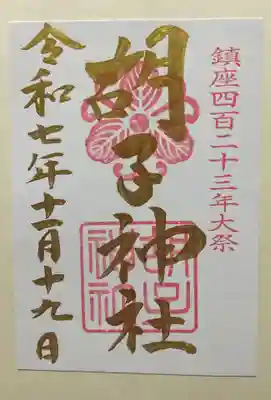 鎮座四百二十三年大祭
胡子神社
令和七年十一月十九日
胡子神社